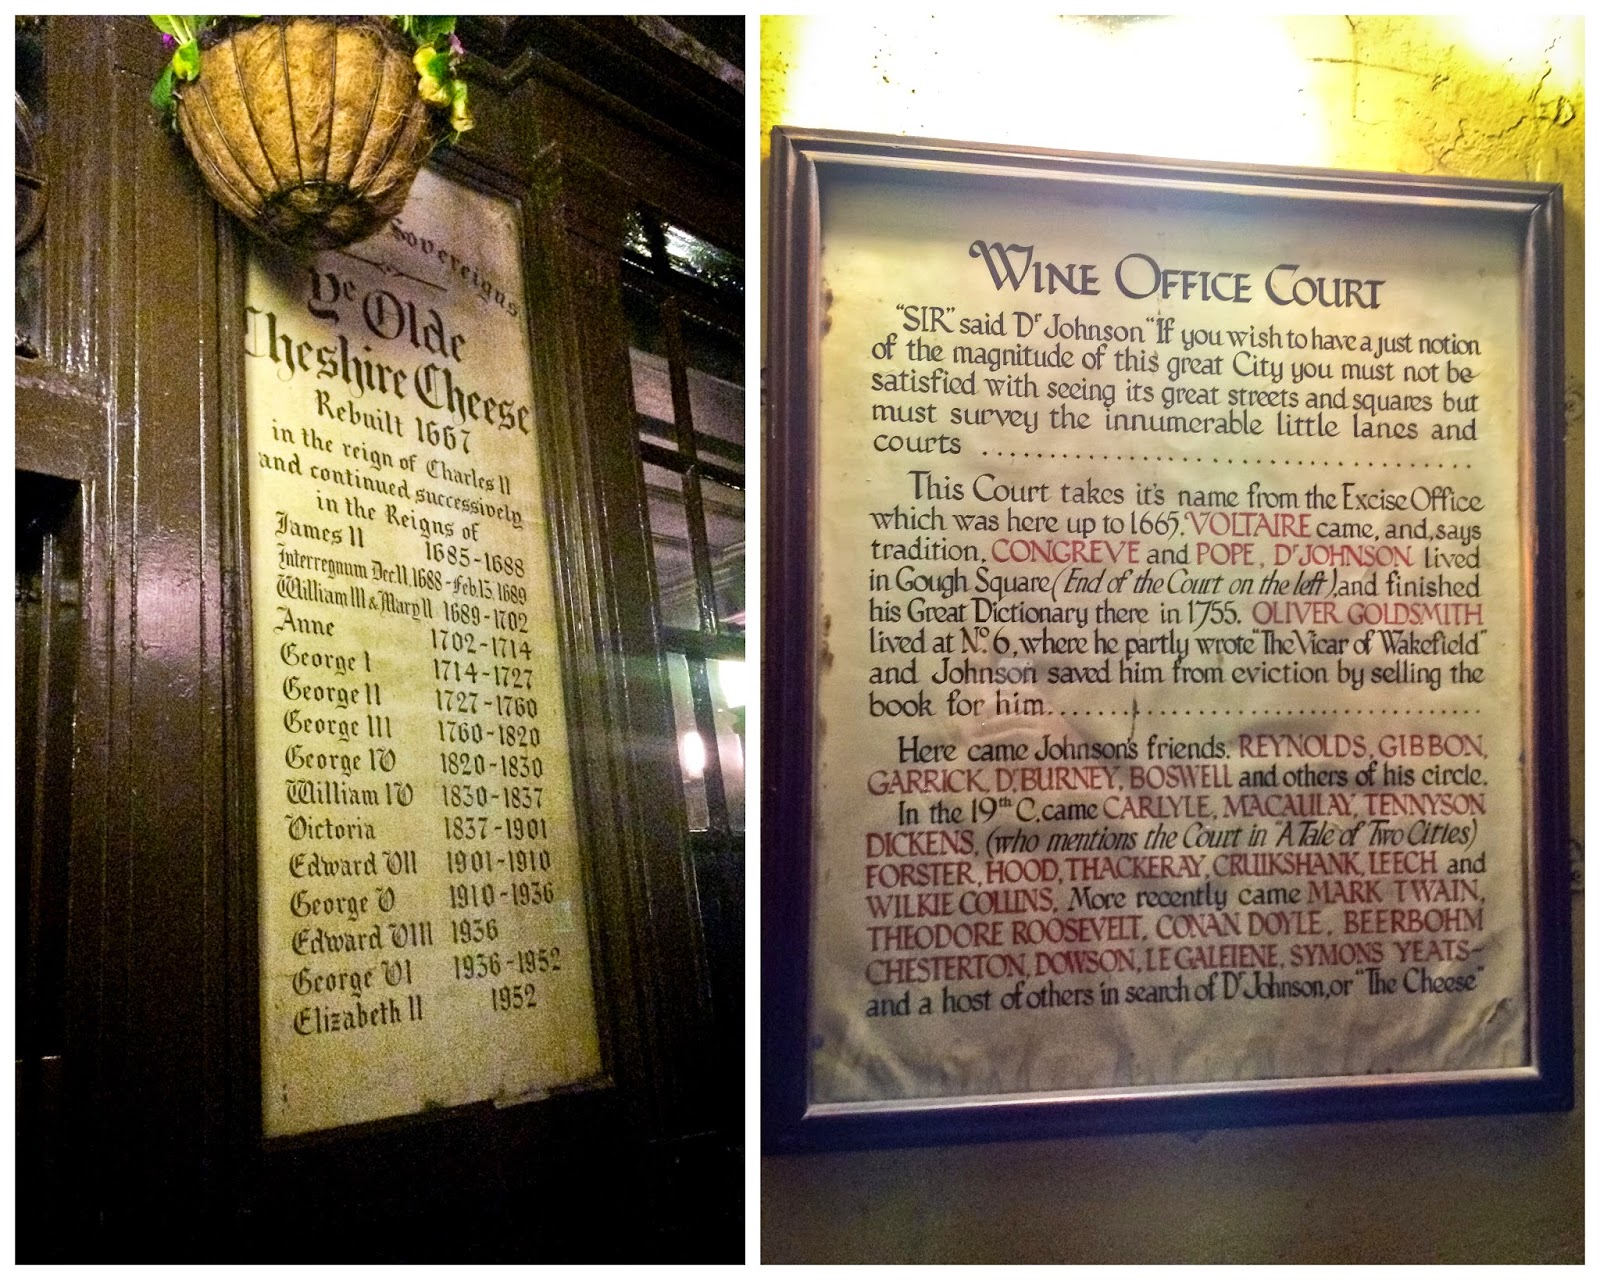 Sovereigns
Ye Olde
Cheshire Cheese
Rebuilt 1667
in the reign of Charles II
and continued successively
in the Reigns of
James II 1685-1688
Interregnum Dec.11,1688-Feb.13,1689
William III & Mary II 1689-1702
Anne 1702-1714
George I 1714-1727
George II 1727-1760
George III 1760-1820
George IV 1820-1830
William IV 1830-1837
Victoria 1837-1901
Edward VII 1901-1910
George V 1910-1936
Edward VIII 1936
George VI 1936-1952
Elizabeth II 1952
WINE OFFICE COURT
"SIR" said Dr Johnson "If you wish to have a just notion
of the magnitude of this great City you must not be
satisfied with seeing its great streets and squares but
must survey the innumerable little lanes and
courts ....................................
This Court takes it's name from the Excise Office
which was here up to 1665. VOLTAIRE came, and, says
tradition, CONGREVE and POPE, Dr JOHNSON lived
in Gough Square (End of the Court on the left), and finished
his Great Dictionary there in 1755. OLIVER GOLDSMITH
lived at No. 6, where he partly wrote "The Vicar of Wakefield"
and Johnson saved him from eviction by selling the
book for him....................................
Here came Johnson's friends, REYNOLDS, GIBBON,
GARRICK, Dr. BURNEY, BOSWELL and others of his circle.
In the 19th C. came CARLYLE, MACAULAY, TENNYSON
DICKENS, (who mentions the Court in "A Tale of Two Cities)
FORSTER, HOOD, THACKERAY, CRUIKSHANK, LEECH and
WILKIE COLLINS. More recently came MARK TWAIN,
THEODORE ROOSEVELT, CONAN DOYLE, BEERBOHM
CHESTERTON, DOWSON, LE GALEIENE, SYMONS YEATS-
and a host of others in search of Dr Johnson, or "The Cheese"